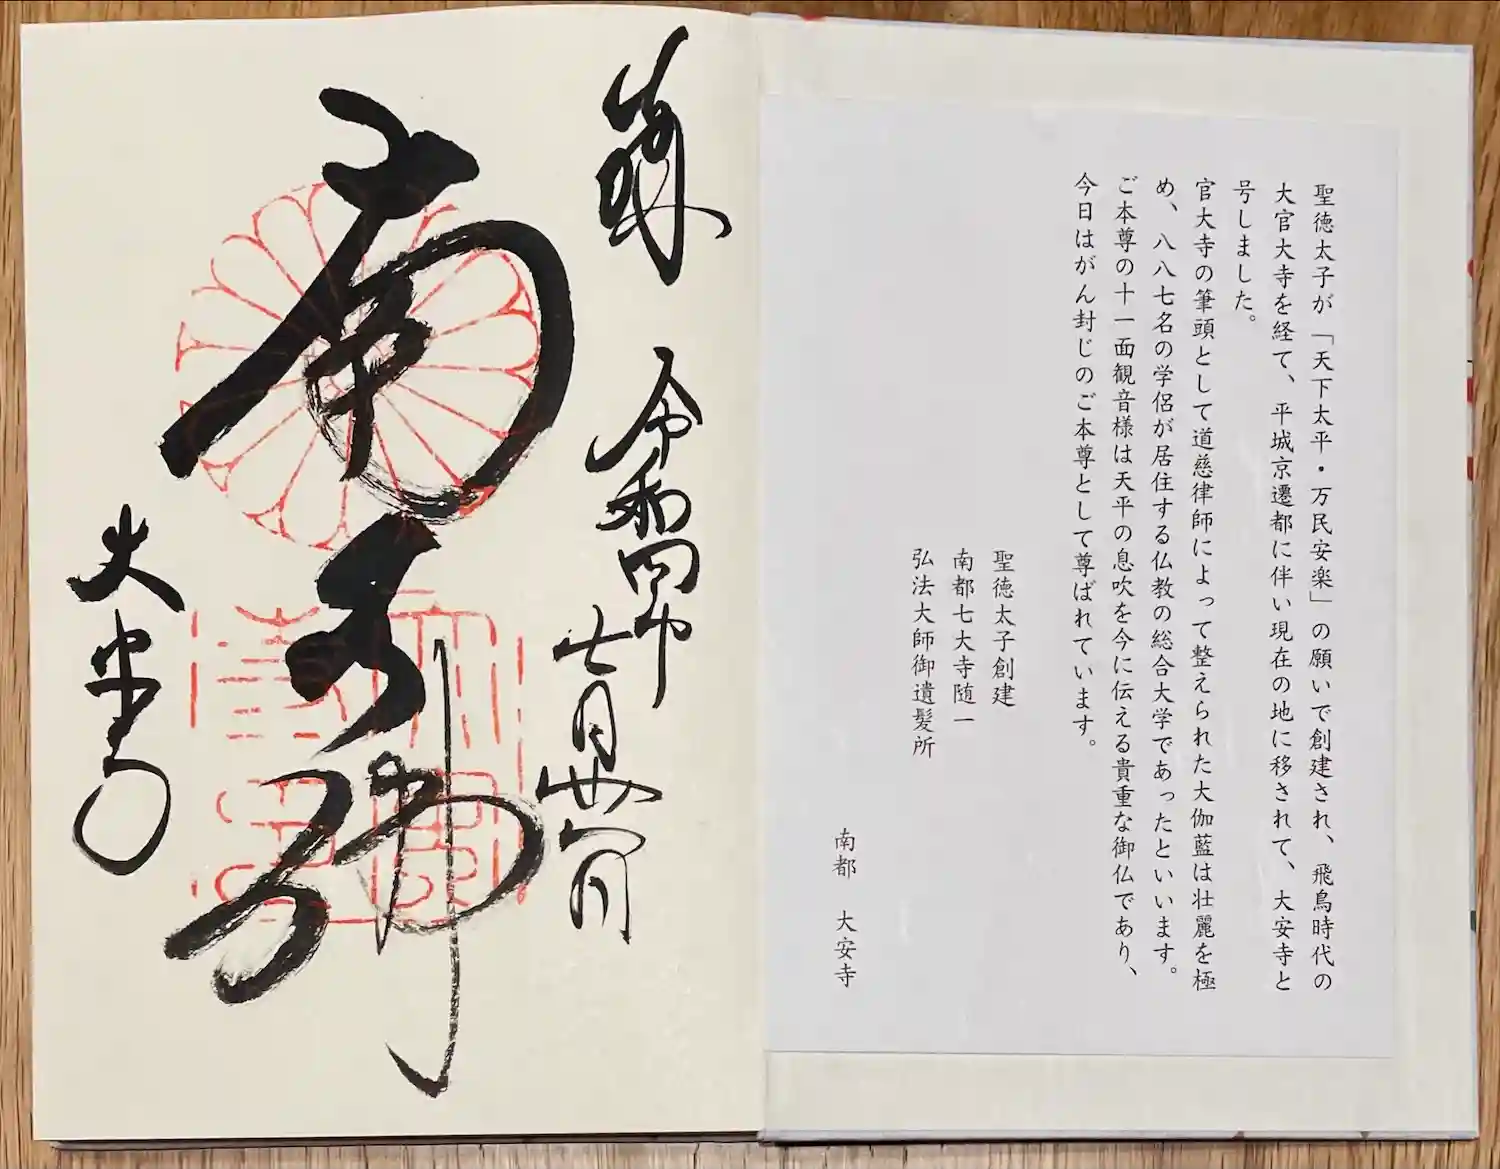 聖徳太子が「天下太平・万民安楽」の願いで創建され、飛鳥時代の
大官大寺を経て、平城京遷都に伴い現在の地に移されて、大安寺と
号しました。
官大寺の筆頭として道慈律師によって整えられた大伽藍は壮麗を極
め、八八七名の学侶が居住する仏教の総合大学であったといいます。
ご本尊の十一面観音様は天平の息吹を今に伝える貴重な御仏であり、
今日はがん封じのご本尊として尊ばれています。
聖徳太子創建
南都七大寺随一
弘法大師御遺髪所
南都 大安寺
奉拝 令和四年 七月廿 日
南無佛
大安寺